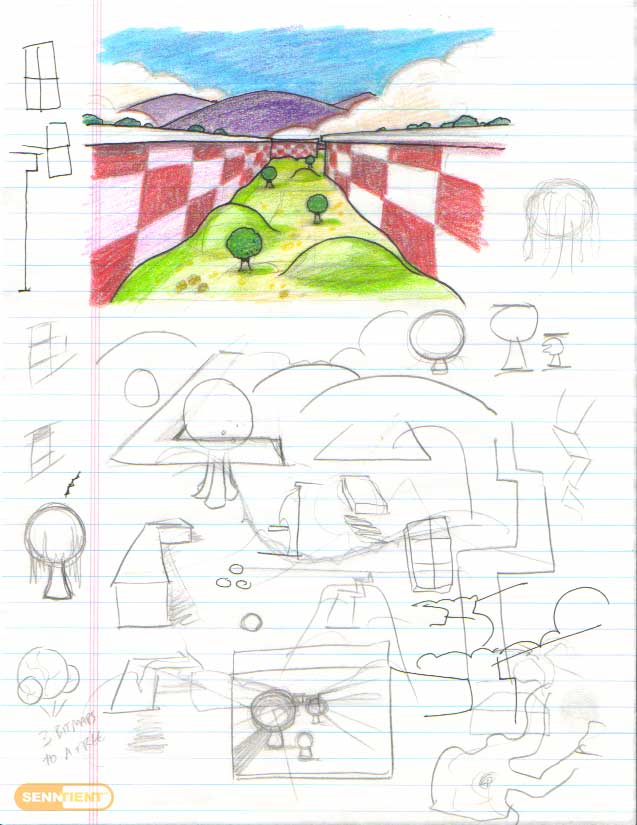 3 BITMAPS
TO A TREE.
SENNTIENT